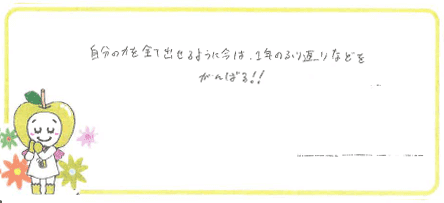 自分の力を全て出せるように今は、1年のふり返りなどを
がんばる!!